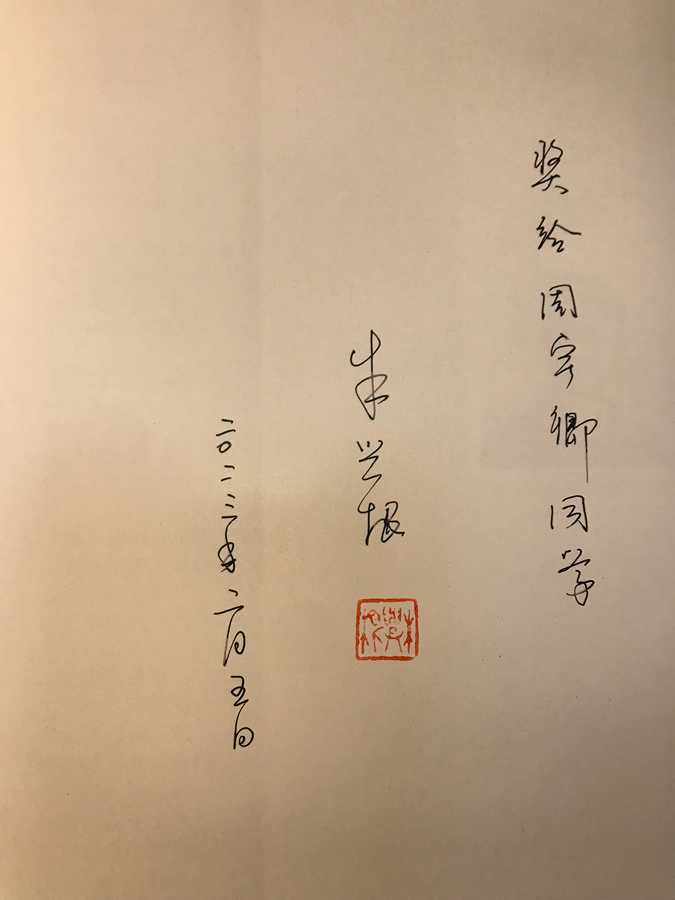 奖给周宇卿同学
朱兴根
二〇二三年二月五日